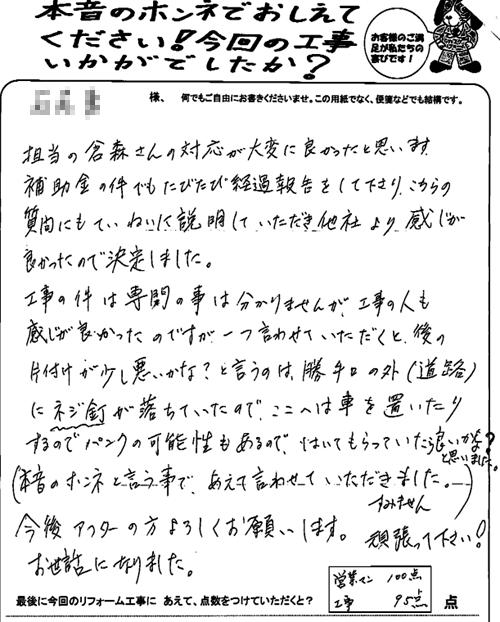 本音のホンネでおしえて
ください!今回の工事
いかがでしたか?
お客様のご満
足が私たちの
喜びです!
様、 何でもご自由にお書きくださいませ。この用紙でなく、便箋などでも結構です。
担当の倉森さんの対応が大変に良かったと思います。
補助金の件でもたびたび経過報告をして下さり、こちらの
質問にもていねいに説明していただき他社より感じが
良かったので決定しました。
工事の件は専門の事は分かりませんが、工事の人も
感じが良かったのですが、一つ言わせていただくと、後の
片付けが少し悪いかな?と言うのは、勝手口の外(道路)
にネジ釘が落ちていたので、ここへは車を置いたり
するのでパンクの可能性もあるので、はいてもらっていたら良いかな?
と思いました。
(本音のホンネと言う事で、あえて言わせていただきました。)
すみません
今後アフターの方よろしくお願いします。
頑張って下さい!
お世話になりました。
営業マン 100点
工事 95点
最後に今回のリフォーム工事に あえて、点数をつけていただくと? 点